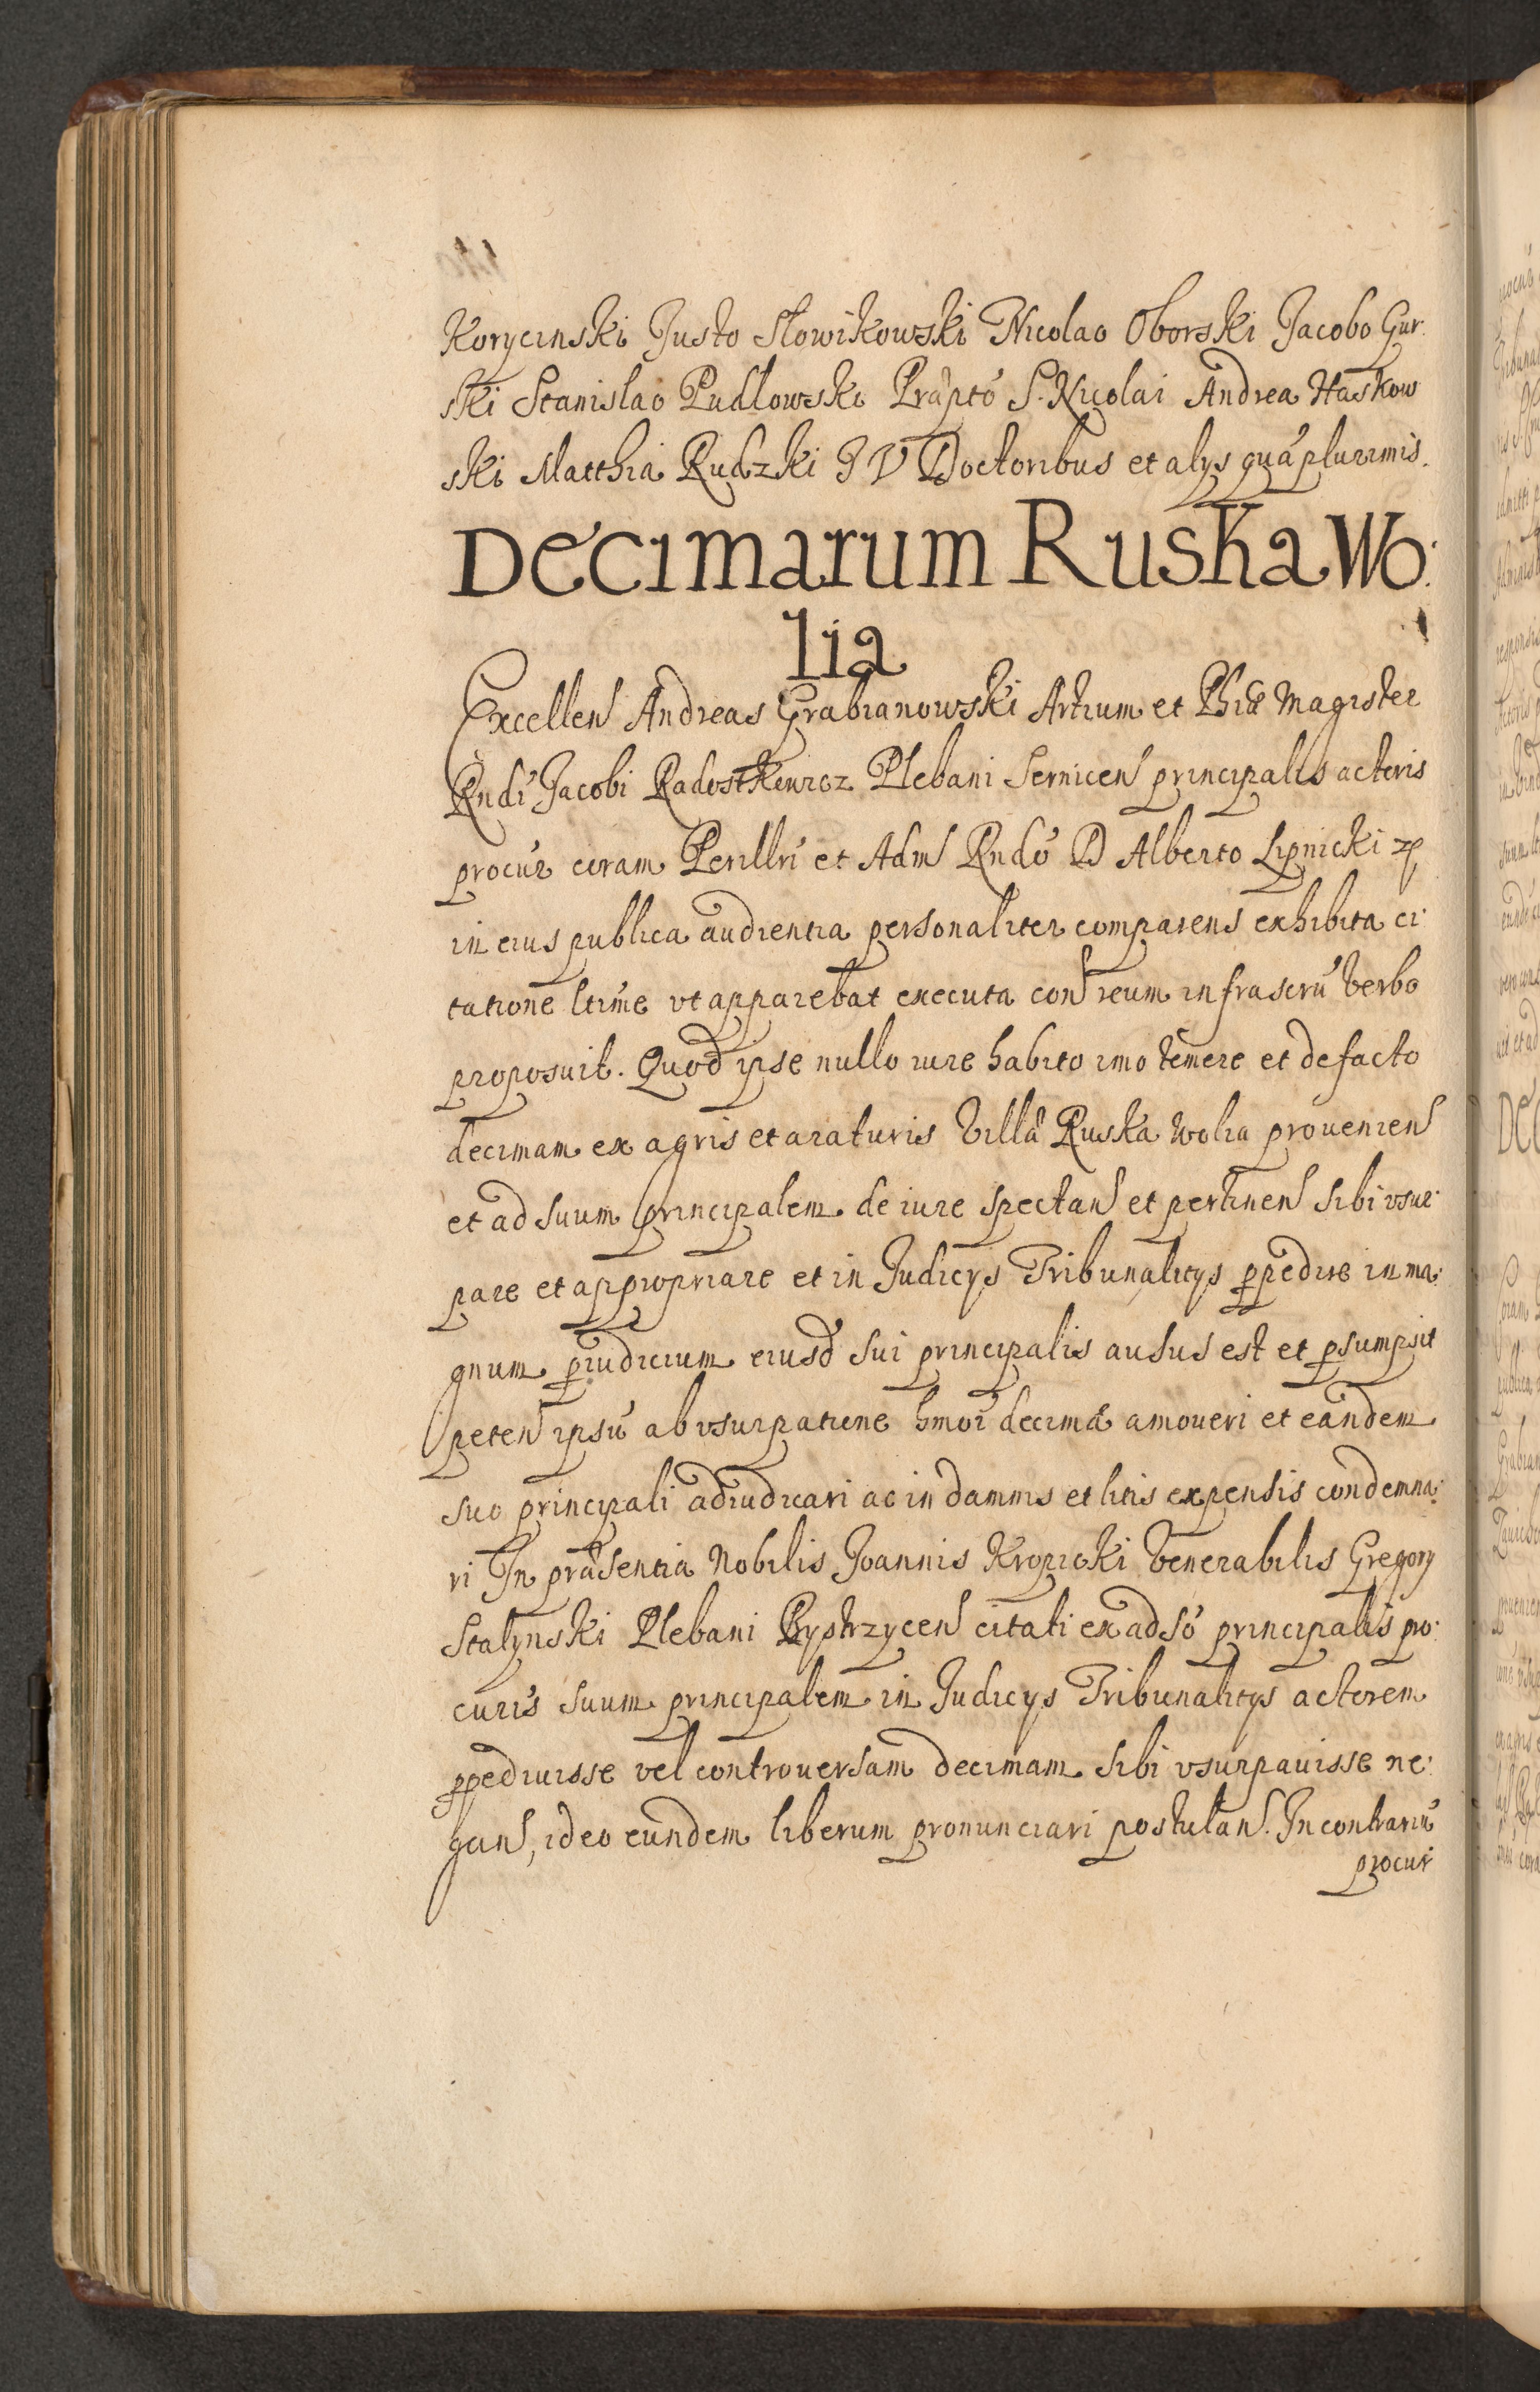 Korycinski Justo Słowikowski Nicolao Oborski Jacobo Gur:
ski Stanislao Pudłowski Præpto S. Nicolai Andrea Haskow
ski Matthia Rudzki J V Doctoribus et alys quáplurimis.
Decimarum Ruska Wo:
lia
Excellen Andreas Grabianowski Artium et Phiæ Magister
Rndi Jacobi Radostkewicz Plebani Sernicen principalis actoris
procur coram Perillri et Adm Rndo D Alberto Lipnicki
in eius publica audientia personaliter comparens exhibita ci:
tatione ltime vt apparebat executa con reum infrascru verbo
proposuit. Quod ipse nullo iure habito imo temere et de facto
decimam ex agris et araturis Villæ Ruska Wolia prouenien
et ad suum principalem de iure spectan et pertinen sibi vsur:
pare et appropriare et in Judicys Tribunalitys ppedire in ma:
gnum piudicium eiusd sui principalis ausus est et psumpsit
peten ipsu ab vsurpatione hmoi decimæ amoueri et eandem
suo principali adiudicari ac in damnis et litis expensis condemna:
ri In præsentia Nobilis Joannis Kropicki Venerabilis Gregory
Stalynski Plebani Bystrzycen citati ex adso principalis pro:
curis suum principalem in Judicys Tribunalitys actorem
ppediuisse vel controuersam decimam sibi vsurpauisse ne:
gan, ideo eundem liberum pronunciari postulan. In contrariu
procur